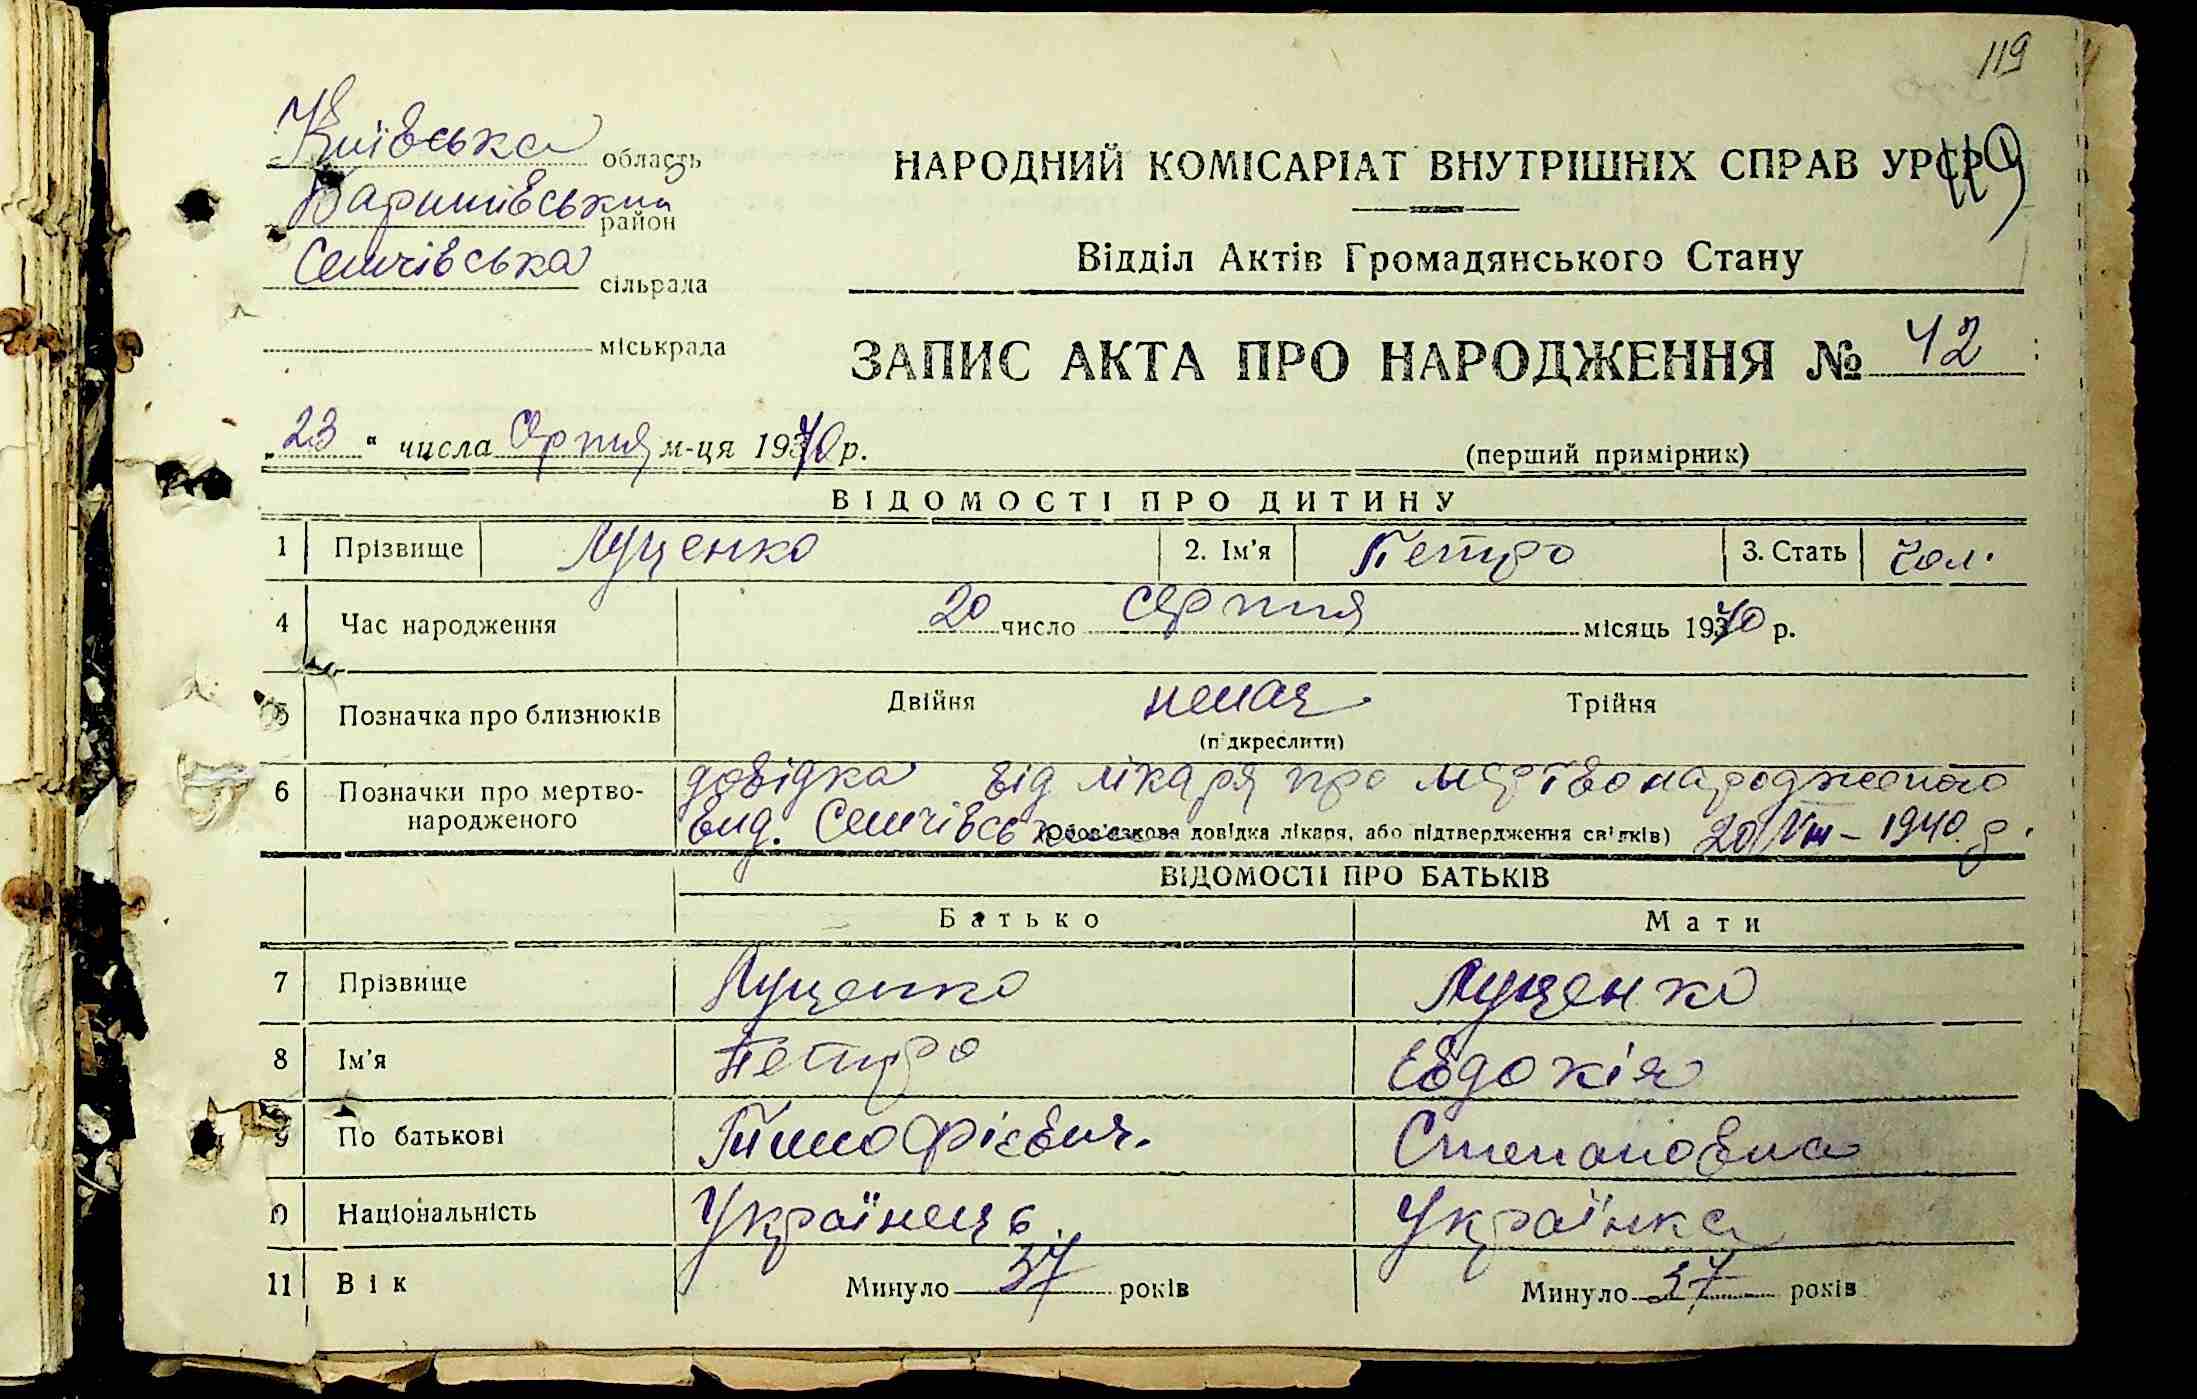 119
Київська область
Баришівський район
Семчівська сільрада
міськрада
НАРОДНИЙ КОМІСАРІАТ ВНУТРІШНІХ СПРАВ УРСР
119
Відділ Актів Громадянського Стану
ЗАПИС АКТА ПРО НАРОДЖЕННЯ № 42
„23“ числа Серпня м-ця 1940 р.
(перший примірник)
ВІДОМОСТІ ПРО ДИТИНУ
1 Прізвище Луценко 2. Ім'я Петро 3. Стать чол.
4 Час народження 20 число серпня місяць 1940 р.
5 Позначка про близнюків Двійня немає Трійня
(підкреслити)
6 Позначки про мертвонародженого довідка від лікаря про мертвонародженого
вид. Семчівсь (Обов'язкова довідка лікаря, або підтвердження свідків) 20/VIII – 1940 р.
ВІДОМОСТІ ПРО БАТЬКІВ
Батько Мати
7 Прізвище Луценко Луценко
8 Ім'я Петро Евдокія
9 По батькові Тимофієвич. Степановна
10 Національність Українець. Українка
11 Вік Минуло 37 років Минуло 37 років